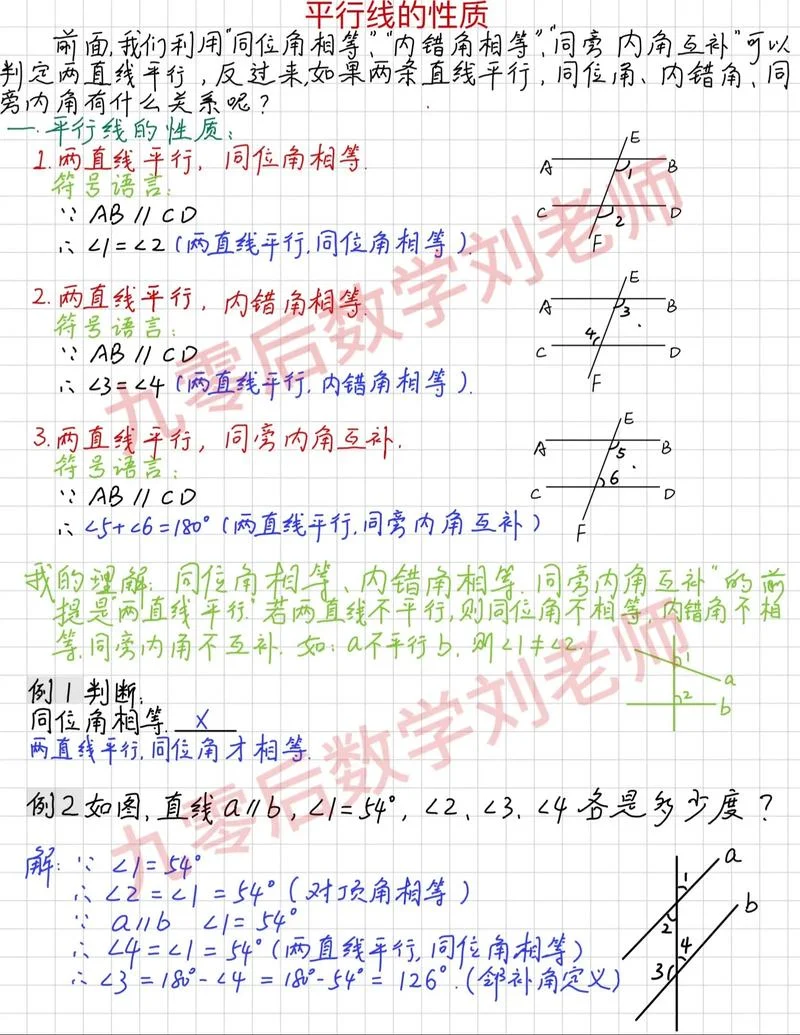 平行线的性质
前面,我们利用"同位角相等"、"内错角相等"、"同旁内角互补"可以
判定两直线平行,反过来,如果两条直线平行,同位角、内错角、同
旁内角有什么关系呢?
一.平行线的性质:
1.两直线平行,同位角相等.
符号语言:
∵ AB∥CD
∴ ∠1=∠2(两直线平行,同位角相等).
E
A
1
B
C
2
D
F
2.两直线平行,内错角相等.
符号语言:
∵ AB∥CD
∴ ∠3=∠4(两直线平行,内错角相等).
E
A
3
B
4
C
D
F
3.两直线平行,同旁内角互补.
符号语言:
∵ AB∥CD
∴ ∠5+∠6=180°(两直线平行,同旁内角互补)
E
A
5
B
6
C
D
F
我的理解:同位角相等、内错角相等.同旁内角互补"的前
提是"两直线平行".若两直线不平行,则同位角不相等,内错角不相
等,同旁内角不互补.如:a不平行b,则∠1≠∠2.
1
a
2
b
例1 判断:
同位角相等. ×
两直线平行,同位角才相等.
例2 如图,直线a∥b,∠1=54°,∠2、∠3、∠4各是多少度?
解:∵ ∠1=54°
∴ ∠2=∠1=54°(对顶角相等)
∵ a∥b ∠1=54°
∴ ∠4=∠1=54°(两直线平行,同位角相等)
∴ ∠3=180°-∠4=180°-54°=126°.(邻补角定义)
a
1
b
2
4
3
九零后数学刘老师
九零后数学刘老师